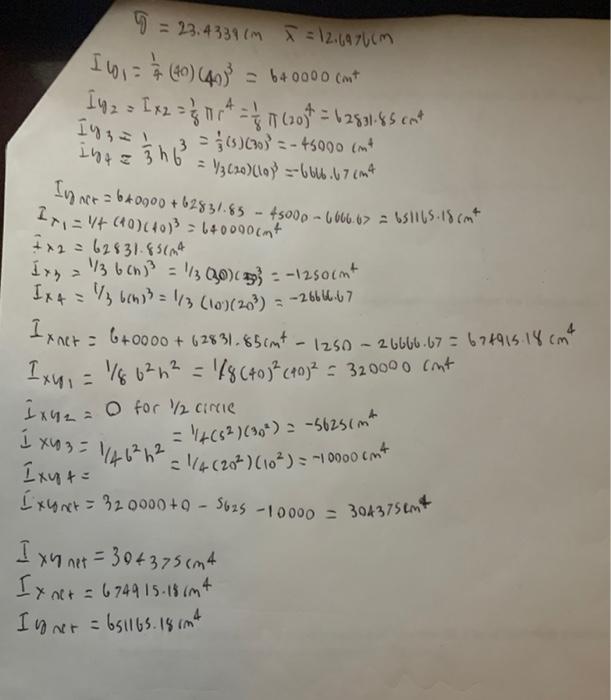 ȳ = 23.4339 cm x̄ = 12.6976 cm
Iy1 = 1/4 (40)(40)³ = 640000 cm⁴
Iy2 = Ix2 = 1/8 πr⁴ = 1/8 π(20)⁴ = 62831.85 cm⁴
Iy3 = 1/3 hb³ = 1/3(5)(30)³ = -45000 cm⁴
Iy4 = = 1/3(20)(10)³ = -6666.67 cm⁴
Iy net = 640000 + 62831.85 - 45000 - 6666.67 = 651165.18 cm⁴
Ix1 = 1/4 (40)(40)³ = 640000 cm⁴
Ix2 = 62831.85 cm⁴
Ix3 = 1/3 b(h)³ = 1/3 (30)(5)³ = -1250 cm⁴
Ix4 = 1/3 b(h)³ = 1/3 (10)(20³) = -26666.67
Ix net = 640000 + 62831.85 cm⁴ - 1250 - 26666.67 = 674915.18 cm⁴
Ixy1 = 1/8 b²h² = 1/8 (40)²(40)² = 320000 cm⁴
Ixy2 = 0 for 1/2 circle
Ixy3 = 1/4 b²h² = 1/4(5²)(30²) = -5625 cm⁴
Ixy4 = = 1/4(20²)(10²) = -10000 cm⁴
Ixy net = 320000 + 0 - 5625 - 10000 = 304375 cm⁴
Ixy net = 304375 cm⁴
Ix net = 674915.18 cm⁴
Iy net = 651165.18 cm⁴